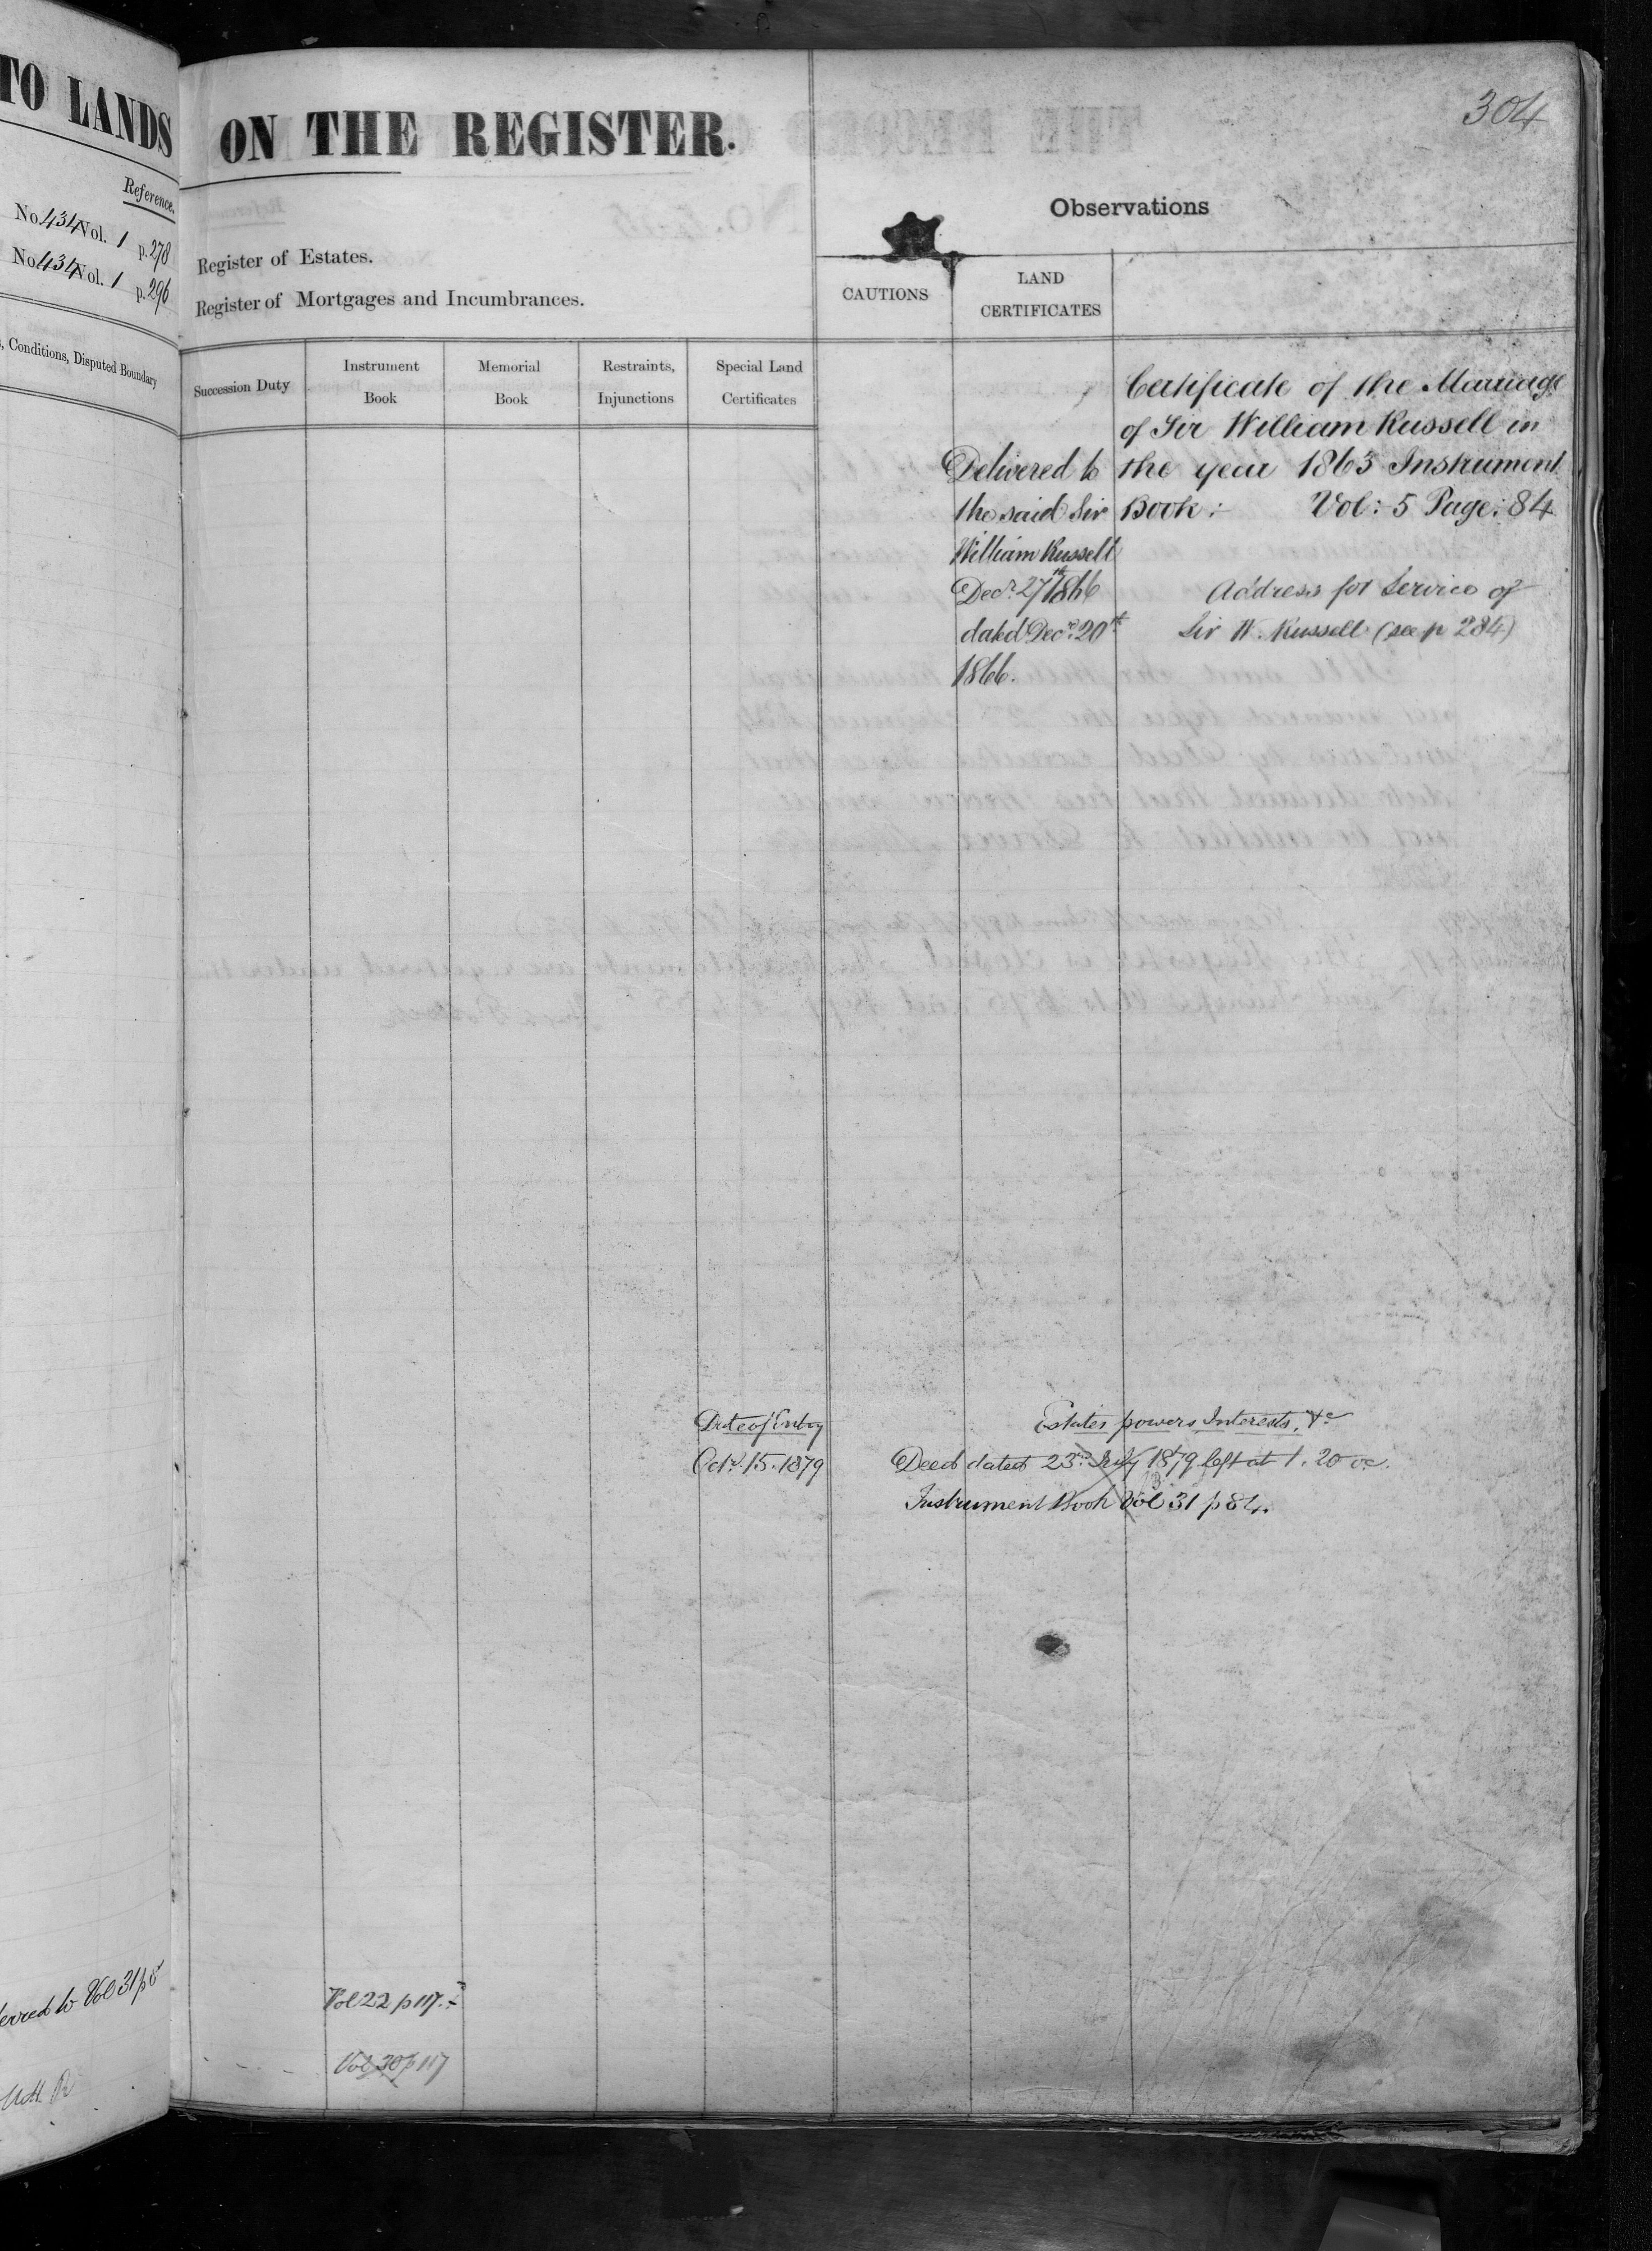 TO LANDS
Reference.
No. 434 Vol. 1 p. 278
No. 434 Vol. 1 p. 296
, Conditions, Disputed Boundary
erred to Vol 31 p 8
304
ON THE REGISTER.
Observations
Register of Estates.
Register of Mortgages and Incumbrances.
CAUTIONS
LAND
CERTIFICATES
Succession Duty
Instrument
Book
Memorial
Book
Restraints,
Injunctions
Special Land
Certificates
Certificate of the Marriage
of Sir William Russell in
the year 1863 Instrument
Book :- Vol: 5 Page: 84
Delivered to
the said Sir
William Russell
Decr. 27th 1866
dated Decr. 20th
1866.
Address for Service of
Sir W. Russell (see p 284)
Date of Entry
Octr. 15. 1879
Estates powers Interests, &c
Deed dated 23rd July 1879 left at 1.20 oc.
Instrument Book Vol 31 p 84.
Vol 22 p 117.
Vol 30 p 117